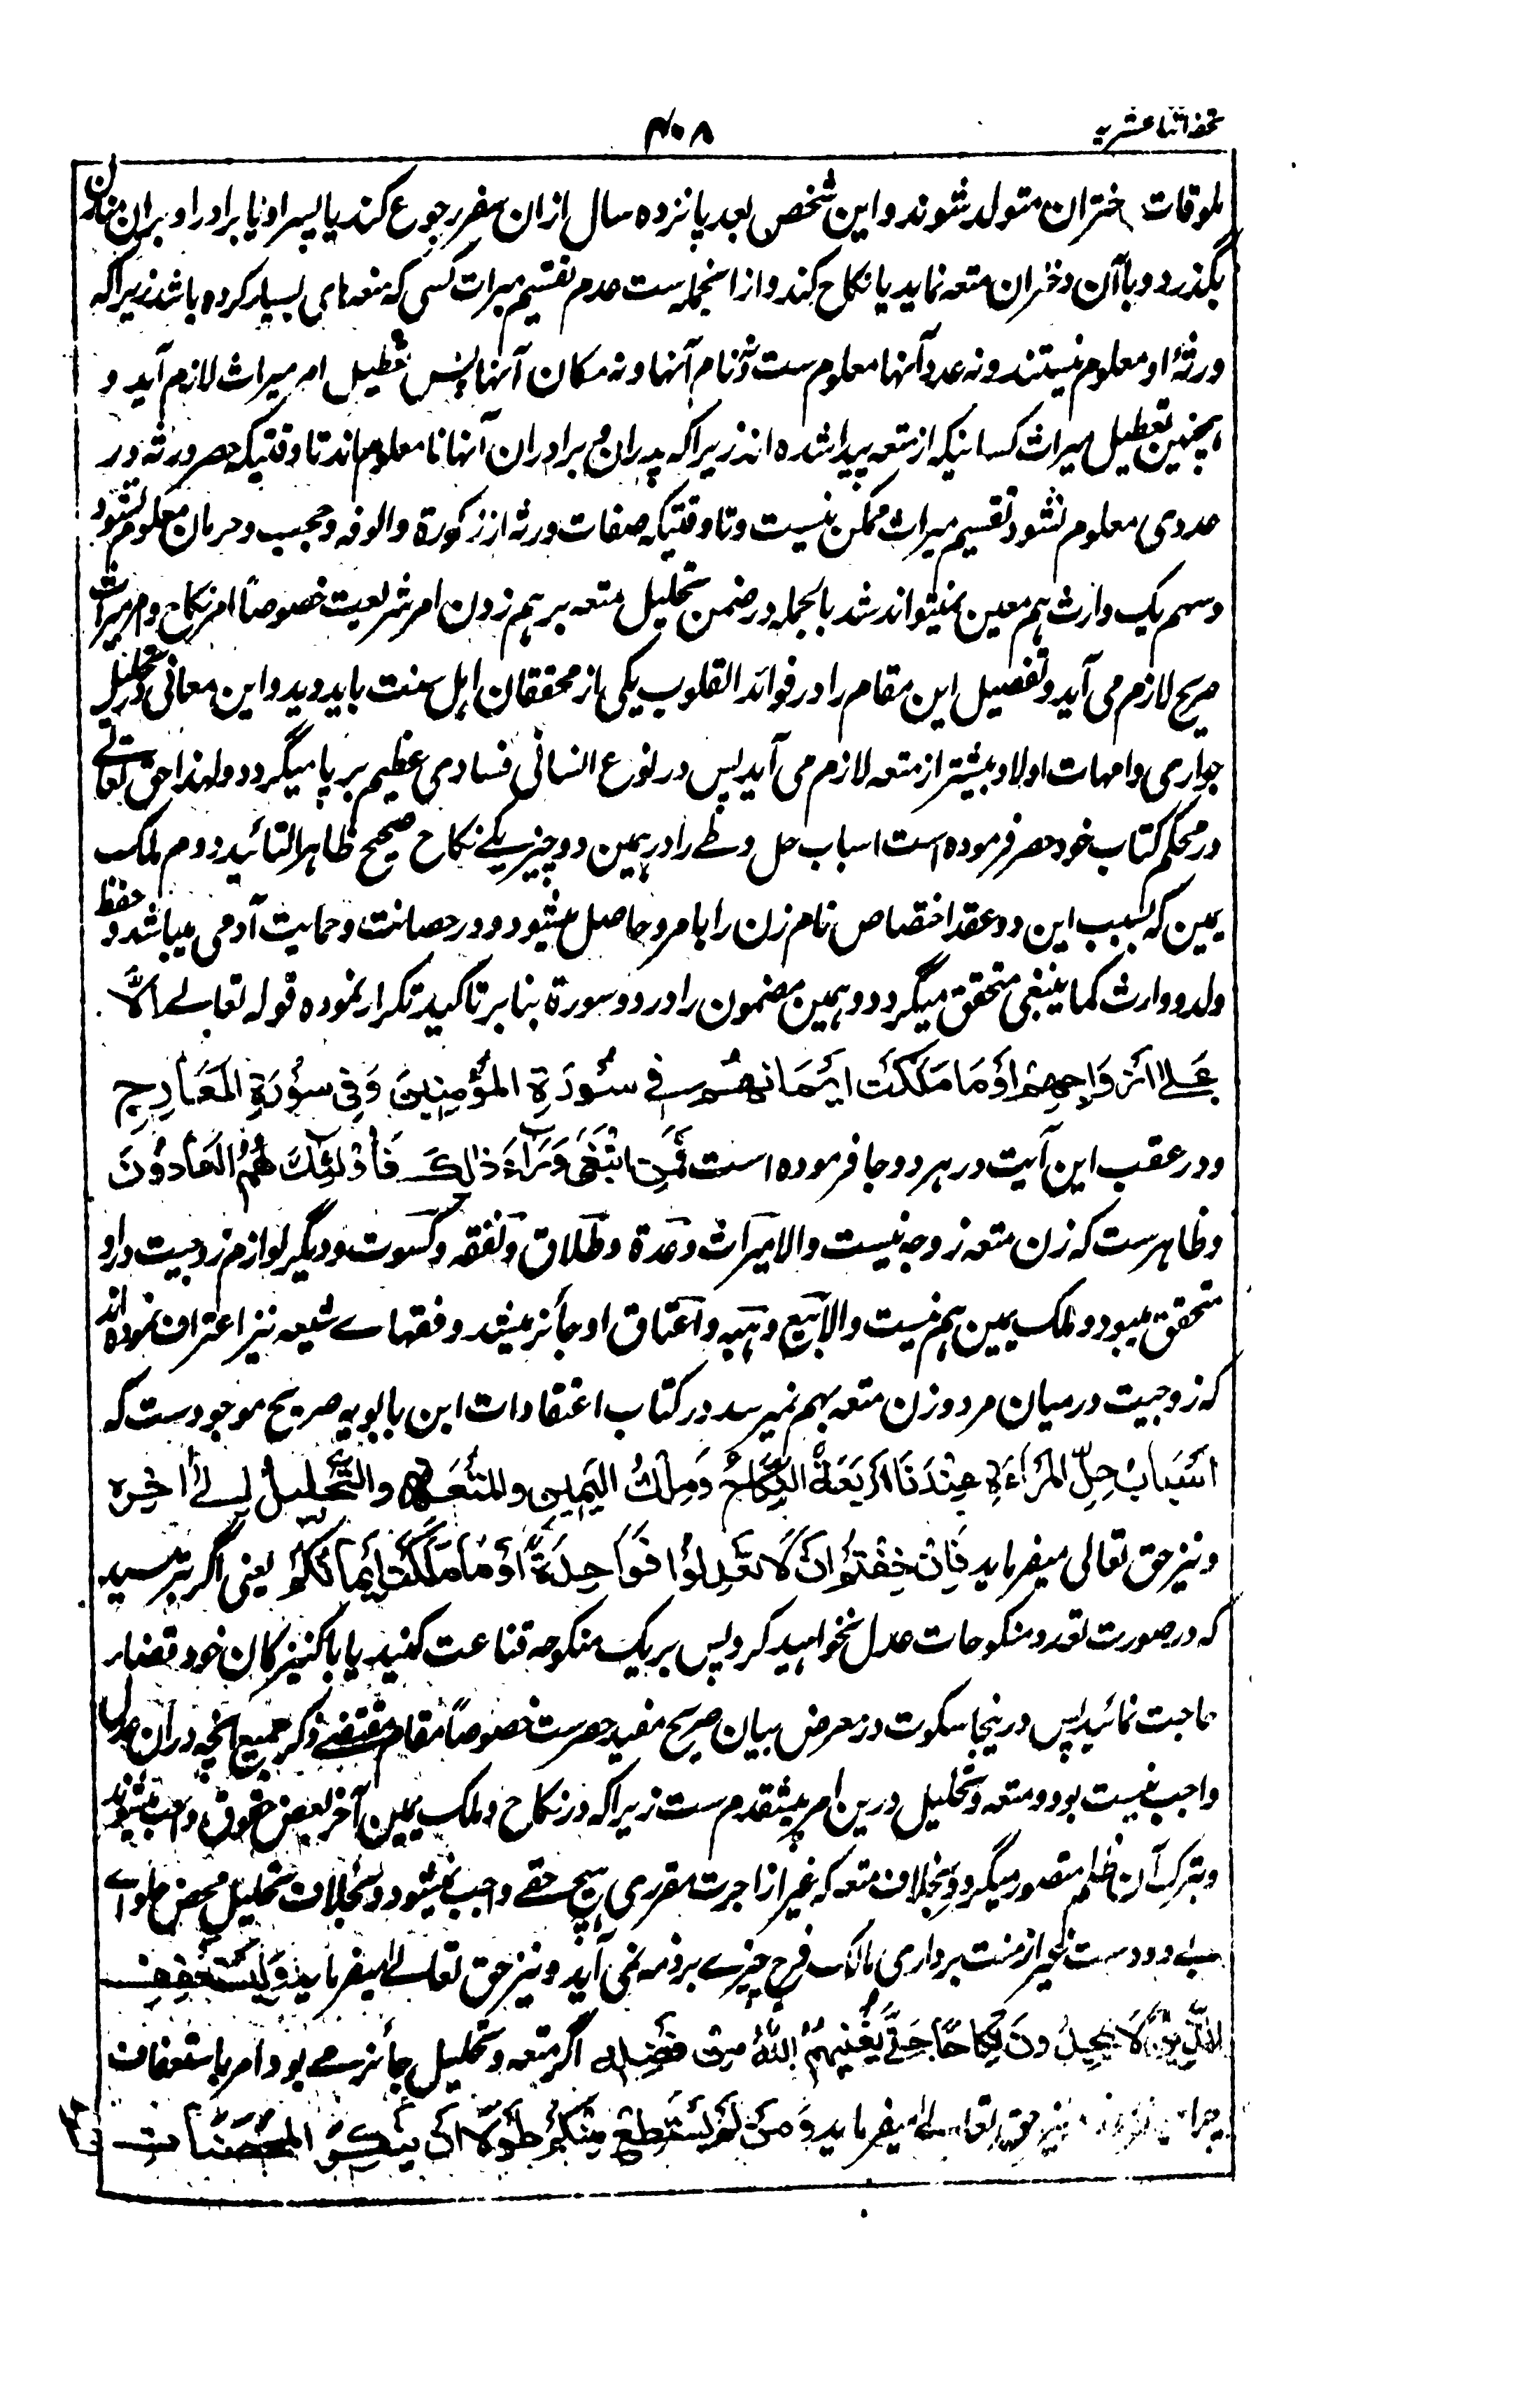 تحفه اثنا عشریه
۴۰۸
ملوقات دختران متولد شوند و این شخص بعد پانزده سال ازان سفر رجوع کند یا پسر او یا برادر او بران منازل
بگذرد و با آن دختران متعه نماید یا نکاح کند و ازانجمله ست عدم تقسیم میراث کسی که متعه های بسیار کرده باشد زیراکه
ورثهٔ او معلوم نیستند و نه عدد آنها معلوم ست و نه نام آنها و نه مکان آنها پس تعطیل امر میراث لازم آید و
همچنین تعطیل میراث کسانیکه از متعه پیدا شده اند زیراکه پدران و برادران آنها نامعلوم اند تا وقتیکه حصر ورثه در
عددی معلوم نشود تقسیم میراث ممکن نیست و تا وقتیکه صفات ورثه از ذکورة و انوثة و حجب و حرمان معلوم نشود
و سهم یک وارث هم معین نمیتواند شد بالجمله در ضمن تحلیل متعه برهم زدن امر شریعت خصوصاً امر نکاح و امر میراث
صریح لازم می آید و تفصیل این مقام را در فوائد القلوب یکی از محققان اهل سنت باید دید و این معانی در تحلیل
جواری و امهات اولاد بیشتر از متعه لازم می آید پس در نوع انسانی فسادی عظیم برپا میگردد و لهذا حق تعالی
در محکم کتاب خود حصر فرموده است اسباب حل وطی را در همین دو چیز یکے نکاح صحیح ظاهر التائید دوم ملک
یمین که بسبب این دو عقد اختصاص تام زن را با مرد حاصل میشود و در حصانت و حمایت آدمی میباشد و حفظ
ولد و وارث کما ینبغی متحقق میگردد و همین مضمون را در دو سورة بنا بر تاکید تکرار نموده قوله تعالے الَّا
عَلٰے اَزْوَاجِهِمْ اَوْ مَا مَلَكَتْ اَيْمَانُهُمْ فی سُوْرَةِ المُؤْمِنِينَ وَفِی سُوْرَةِ الْمَعَارِجِ
و در عقب این آیت در هر دو جا فرموده است فَمَنِ ابْتَغٰی وَرَآءَ ذٰلِكَ فَاُوْلٰئِكَ هُمُ الْعَادُوْنَ
و ظاهرست که زن متعه زوجه نیست و الا میراث و عدة و طلاق و نفقه و کسوت و دیگر لوازم زوجیت در او
متحقق میبود و ملک یمین هم نیست و الا بیع و هبه و اعتاق او جائز میشد و فقهاے شیعه نیز اعتراف نموده اند
که زوجیت درمیان مرد و زن متعه بهم نمیرسد در کتاب اعتقادات ابن بابویه صریح موجودست که
اَسْبَابُ حِلِّ الْمَرْأَةِ عِنْدَنَا اَرْبَعَةٌ النِّكَاحُ وَمِلْكُ الْيَمِيْنِ والمُتْعَةُ والتَّحْلِيْلُ اِلٰے اٰخِرِه
و نیز حق تعالی میفرماید فَاِنْ خِفْتُمْ اَنْ لَّا تَعْدِلُوْا فَوَاحِدَةً اَوْ مَا مَلَكَتْ اَيْمَانُكُمْ یعنی اگر بترسید
که در صورت تعدد منکوحات عدل نخواهید کرد پس بر یک منکوحه قناعت کنید یا با کنیزکان خود قضاء
حاجت نمائید پس درینجا سکوت در معرض بیان صریح مفید حصرست خصوصاً مقام مقتضی ذکر جمیع آنچه دران عدل
واجب نیست بود و متعه و تحلیل درین امر پیشقدم ست زیراکه در نکاح و ملک یمین آخر بعض حقوق واجب میشوند
و بترک آن ظلم متصور میگردد بخلاف متعه که غیر از اجرت مقرری هیچ حقے واجب نمیشود و بخلاف تحلیل محض حلواے
بے دودست غیر از منت برداری مالک فرج چیزے بر ذمه نمی آید و نیز حق تعالے میفرماید وَلْيَسْتَعْفِفِ
الَّذِيْنَ لَا يَجِدُوْنَ نِكَاحًا حَتّٰی يُغْنِيَهُمُ اللّٰهُ مِنْ فَضْلِهٖ اگر متعه و تحلیل جائز مے بود امر باستعفاف
چرا نیز حق تعالے میفرماید وَمَنْ لَّمْ يَسْتَطِعْ مِنْكُمْ طَوْلًا اَنْ يَّنْكِحَ الْمُحْصَنَاتِ